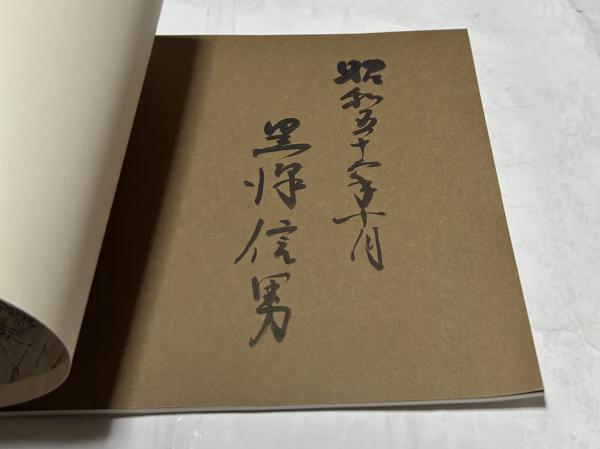 昭和五十六年十月
黒澤信男